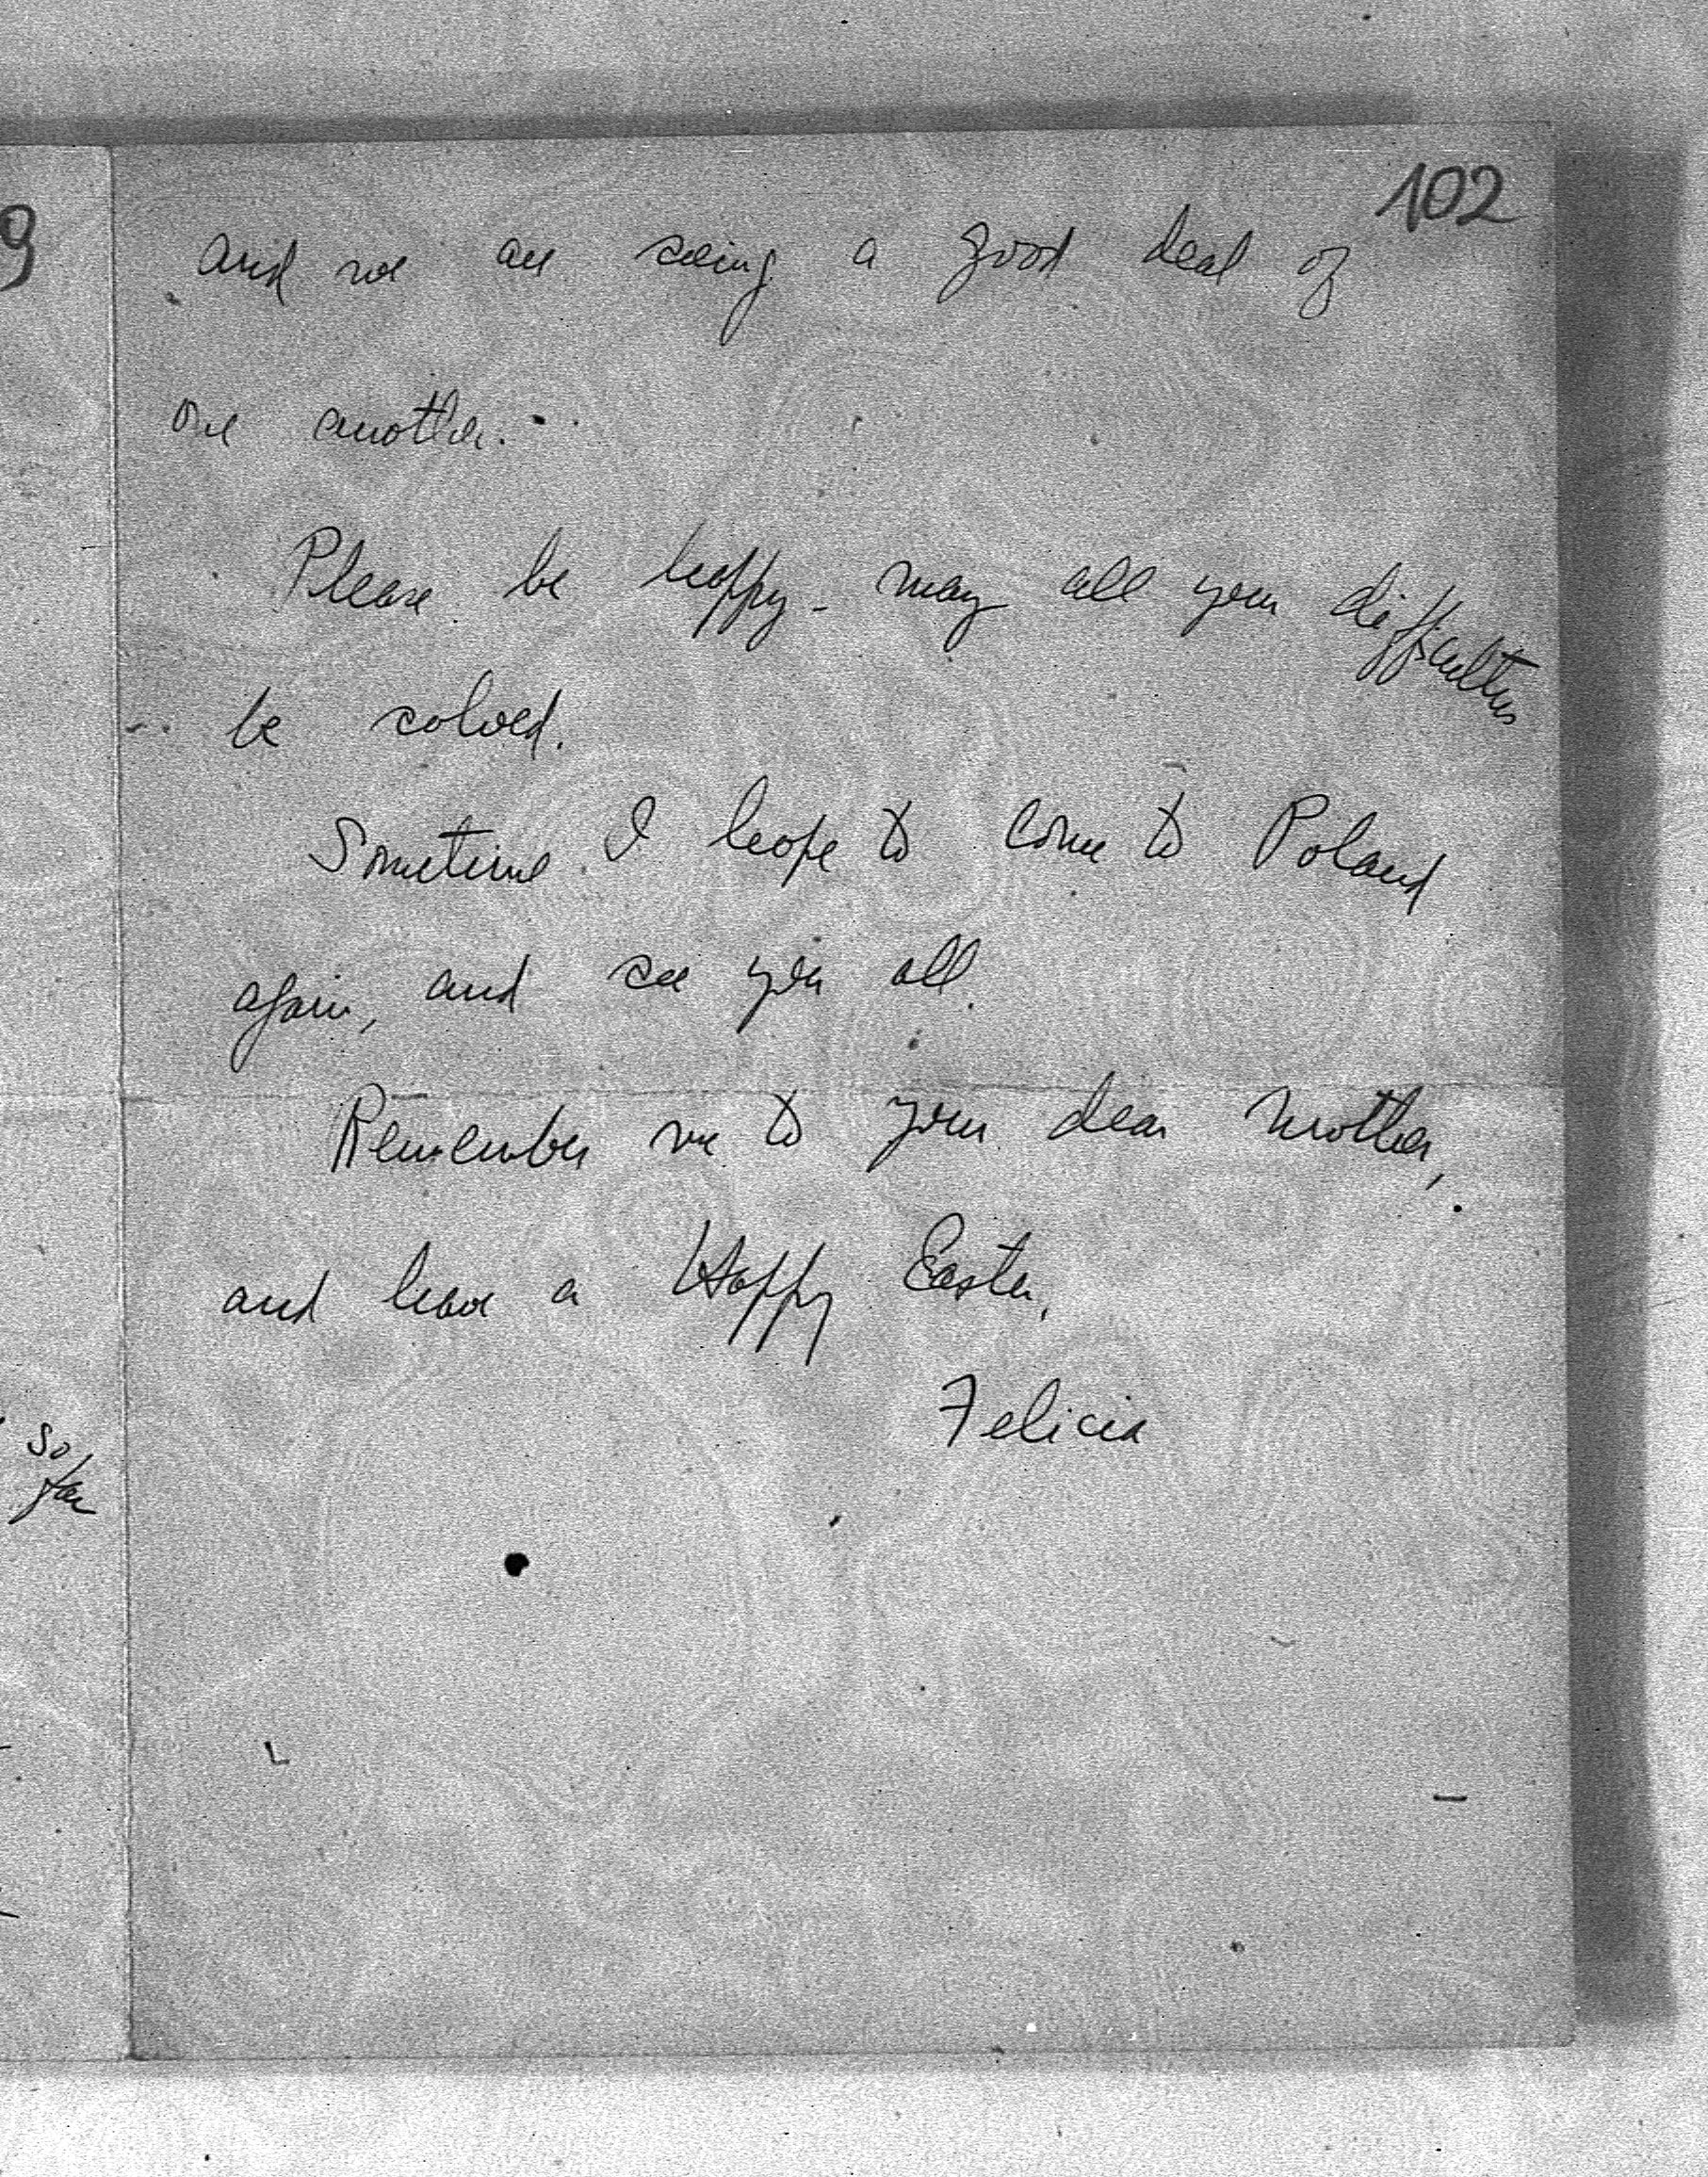 9
so
far
102
and we are seeing a good deal of
one another.
Please be happy - may all your difficulties
be solved.
Sometime I hope to come to Poland
again, and see you all.
Remember me to your dear mother,
and have a Happy Easter,
Felicia